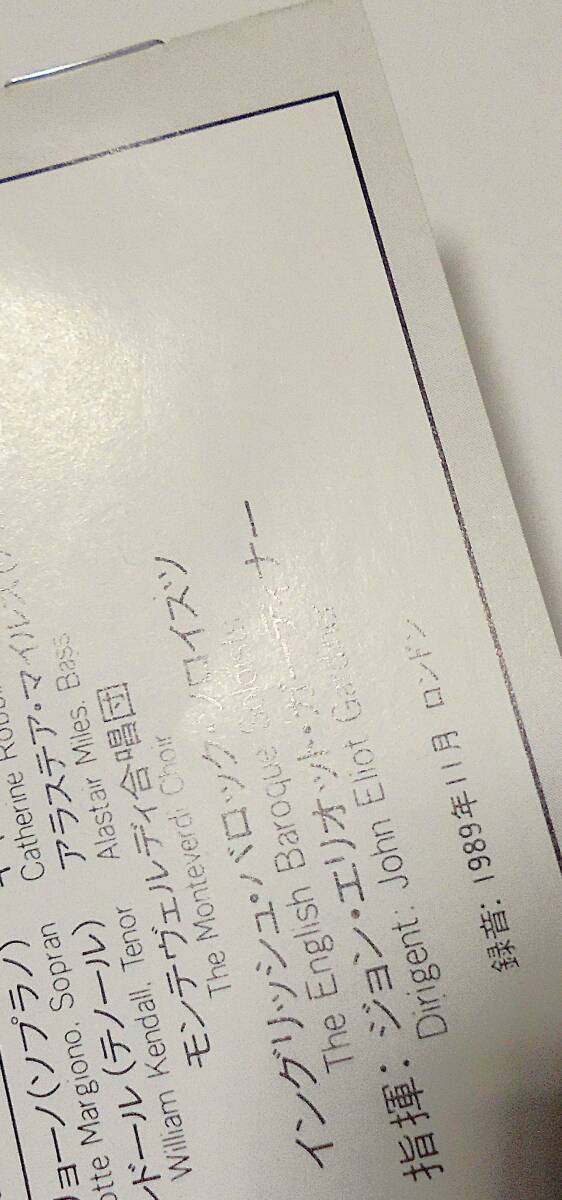 ョーノ(ソプラノ)
otte Margiono, Sopran
Catherine
アラステア・マイルス
Alastair Miles, Bass
ドール(テノール)
William Kendall, Tenor
モンテヴェルディ合唱団
The Monteverdi Choir
イングリッシュ・バロック・ソロイスツ
The English Baroque Soloists
指揮: ジョン・エリオット・ガーディナー
Dirigent: John Eliot Gardiner
録音: 1989年11月 ロンドン